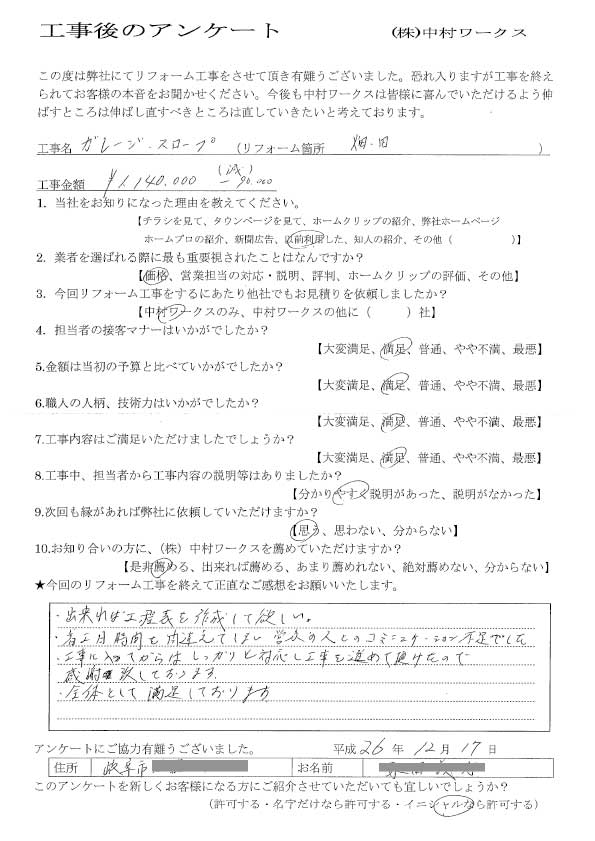 工事後のアンケート (株)中村ワークス
この度は弊社にてリフォーム工事をさせて頂き有難うございました。恐れ入りますが工事を終え
られてお客様の本音をお聞かせください。今後も中村ワークスは皆様に喜んでいただけるよう伸
ばすところは伸ばし直すべきところは直していきたいと考えております。
工事名 ガレージ・スロープ (リフォーム箇所 )
(減)
工事金額 ¥1,140,000 −90,000
1. 当社をお知りになった理由を教えてください。
【チラシを見て、タウンページを見て、ホームクリップの紹介、弊社ホームページ
ホームプロの紹介、新聞広告、以前利用した、知人の紹介、その他( )】
2. 業者を選ばれる際に最も重要視されたことはなんですか?
【価格、営業担当の対応・説明、評判、ホームクリップの評価、その他】
3. 今回リフォーム工事をするにあたり他社でもお見積りを依頼しましたか?
【中村ワークスのみ、中村ワークスの他に( )社】
4. 担当者の接客マナーはいかがでしたか?
【大変満足、満足、普通、やや不満、最悪】
5.金額は当初の予算と比べていかがでしたか?
【大変満足、満足、普通、やや不満、最悪】
6.職人の人柄、技術力はいかがでしたか?
【大変満足、満足、普通、やや不満、最悪】
7.工事内容はご満足いただけましたでしょうか?
【大変満足、満足、普通、やや不満、最悪】
8.工事中、担当者から工事内容の説明等はありましたか?
【分かりやすく説明があった、説明がなかった】
9.次回も縁があれば弊社に依頼していただけますか?
【思う、思わない、分からない】
10.お知り合いの方に、(株)中村ワークスを薦めていただけますか?
【是非薦める、出来れば薦める、あまり薦めれない、絶対薦めない、分からない】
★今回のリフォーム工事を終えて正直なご感想をお願いいたします。
・出来れば工程表を作成して欲しい。
・着工月時間を間違えてしまい営業の人とのコミニュケーション不足でした
・工事に入ってからはしっかりと対応し工事を進めて頂けたので
感謝致しております。
・全体として満足しております
アンケートにご協力有難うございました。 平成26年12月17日
住所 岐阜市 お名前
このアンケートを新しくお客様になる方にご紹介させていただいても宜しいでしょうか?
(許可する・名字だけなら許可する・イニシャルなら許可する)